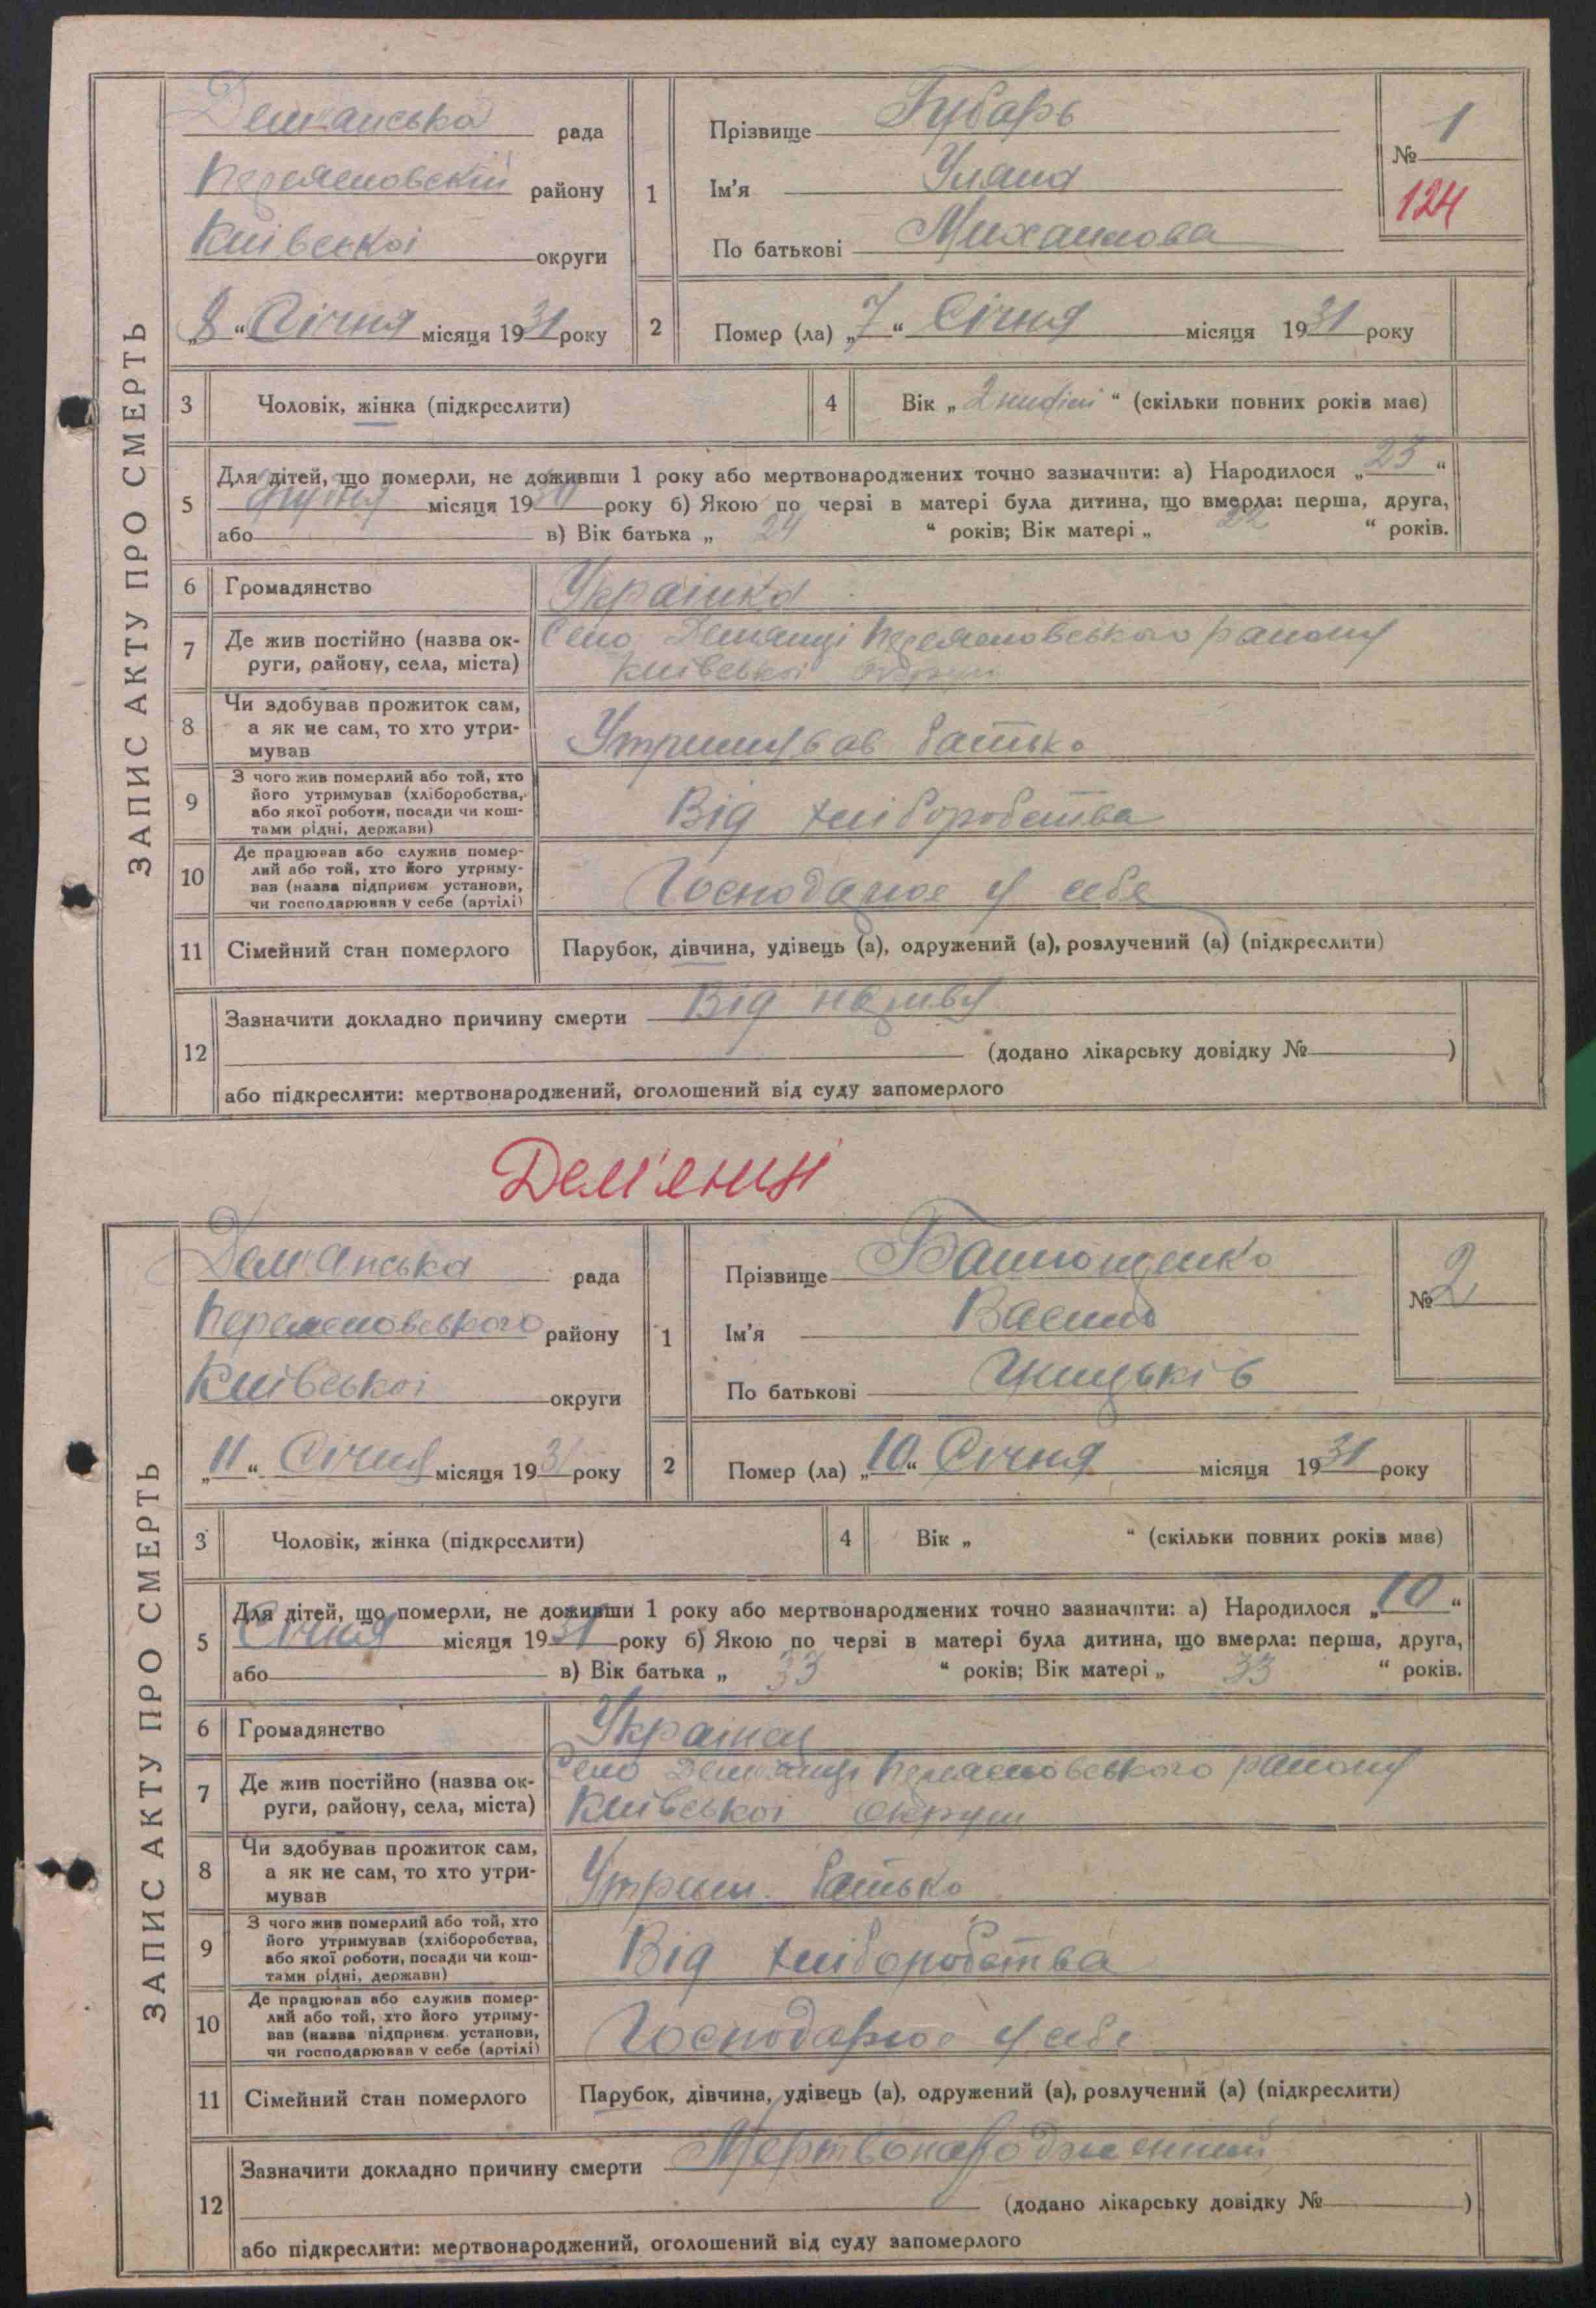 ЗАПИС АКТУ ПРО СМЕРТЬ
Демянська рада
Переясловскій району
Київської округи
„8“ Січня місяця 1931 року
1
Прізвище Губарь
Ім'я Уляна
По батькові Михаилова
№ 1
124
2
Помер (ла) „7“ Січня місяця 1931 року
3 Чоловік, жінка (підкреслити)
4 Вік „2 “ (скільки повних років має)
5
Для дітей, що померли, не доживши 1 року або мертвонароджених точно зазначити: а) Народилося „25“
Грудня місяця 1930 року б) Якою по черзі в матері була дитина, що вмерла: перша, друга,
або в) Вік батька „ 24 “ років; Вік матері „ 22 “ років.
6 Громадянство Українка
7 Де жив постійно (назва ок-
руги, району, села, міста)
Село Демянці Переясловського району
Київської округи
8 Чи здобував прожиток сам,
а як не сам, то хто утри-
мував
Утримував батько
9 З чого жив померлий або той, хто
його утримував (хліборобства,
або якої роботи, посади чи кош-
тами рідні, держави)
Від хліборобства
10 Де працював або служив помер-
лий або той, хто його утриму-
вав (назва підприєм. установи,
чи господарював у себе (артілі)
Господарює у себе
11 Сімейний стан померлого Парубок, дівчина, удівець (а), одружений (а), розлучений (а) (підкреслити)
12
Зазначити докладно причину смерти Від
(додано лікарську довідку № )
або підкреслити: мертвонароджений, оголошений від суду запомерлого
Дем'янці
ЗАПИС АКТУ ПРО СМЕРТЬ
Дем'янська рада
Переясловського району
Київської округи
„11“ Січня місяця 1931 року
1
Прізвище
Ім'я Василь
По батькові
№ 2
2
Помер (ла) „10“ Січня місяця 1931 року
3 Чоловік, жінка (підкреслити)
4 Вік „ “ (скільки повних років має)
5
Для дітей, що померли, не доживши 1 року або мертвонароджених точно зазначити: а) Народилося „10“
Січня місяця 1931 року б) Якою по черзі в матері була дитина, що вмерла: перша, друга,
або в) Вік батька „ 33 “ років; Вік матері „ 33 “ років.
6 Громадянство
7 Де жив постійно (назва ок-
руги, району, села, міста)
Село Демянці Переясловського району
Київської округи
8 Чи здобував прожиток сам,
а як не сам, то хто утри-
мував
Утрим. батько
9 З чого жив померлий або той, хто
його утримував (хліборобства,
або якої роботи, посади чи кош-
тами рідні, держави)
Від хліборобства
10 Де працював або служив помер-
лий або той, хто його утриму-
вав (назва підприєм. установи,
чи господарював у себе (артілі)
Господарює у себе
11 Сімейний стан померлого Парубок, дівчина, удівець (а), одружений (а), розлучений (а) (підкреслити)
12
Зазначити докладно причину смерти Мертвонародженний
(додано лікарську довідку № )
або підкреслити: мертвонароджений, оголошений від суду запомерлого